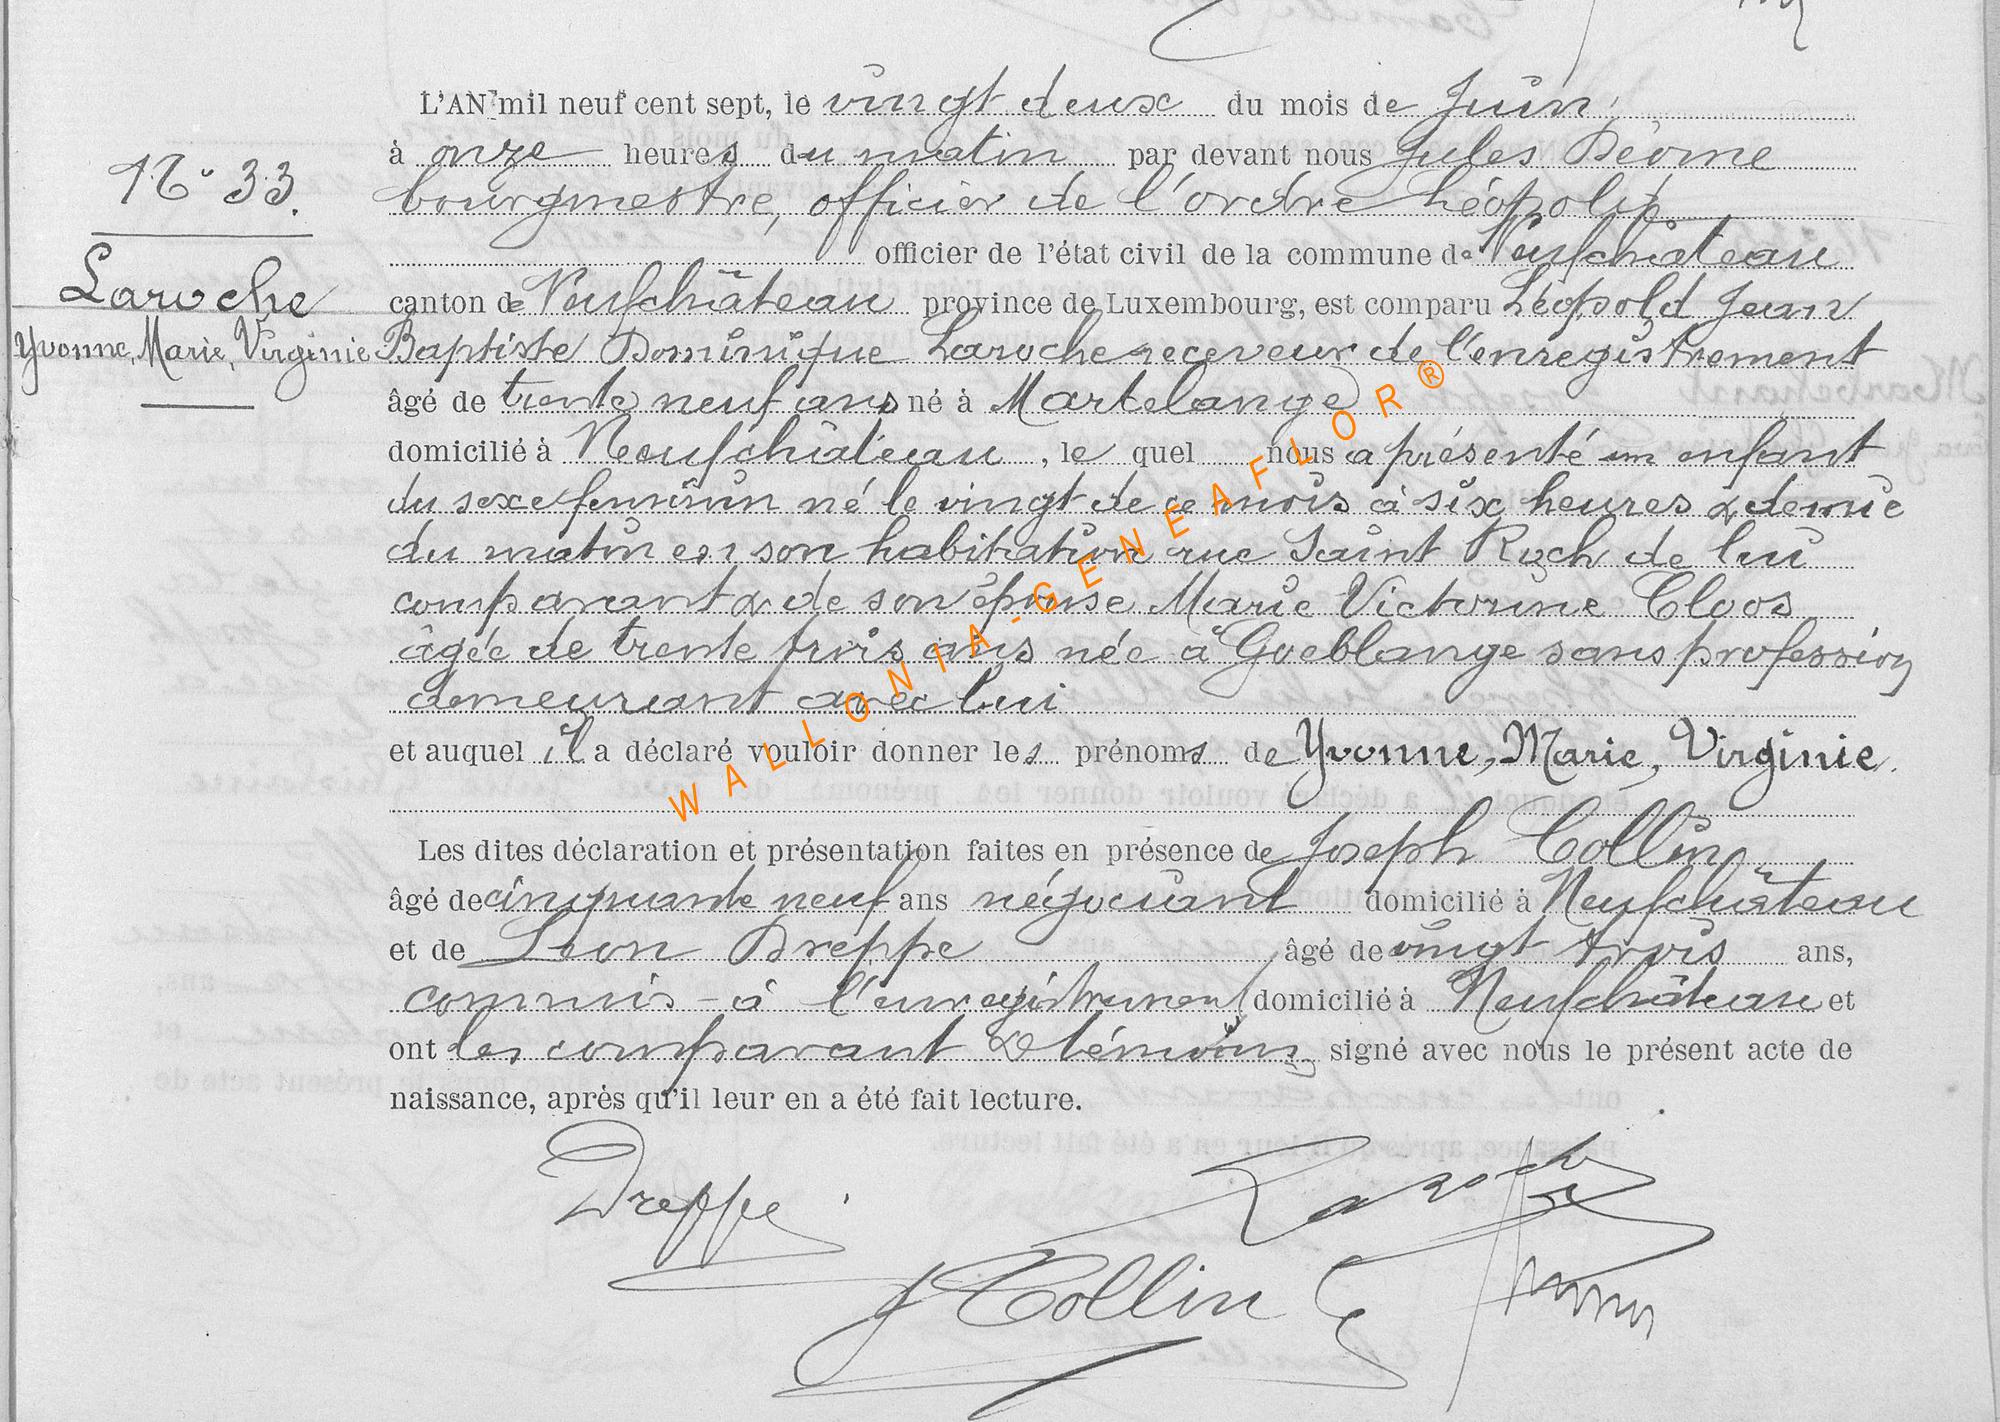 L'AN mil neuf cent sept, le vingt deux du mois de Juin
à onze heures du matin par devant nous Jules
bourgmestre, officier de l'ordre Léopold
officier de l'état civil de la commune de Neufchâteau
canton de Neufchâteau province de Luxembourg, est comparu Léopold Jean
Baptiste Dominique Laroche receveur de l'enregistrement
âgé de trente neuf ans né à Martelange
domicilié à Neufchâteau, le quel nous a présenté un enfant
du sexe feminin né le vingt de ce mois à six heures & demie
du matin en son habitation rue Saint Roch de lui
comparant & de son épouse Marie Victorine Cloos
âgée de trente trois ans née à Goeblange sans profession
demeurant avec lui
et auquel il a déclaré vouloir donner les prénoms de Yvonne, Marie, Virginie.
Les dites déclaration et présentation faites en présence de Joseph Collin
âgé de cinquante neuf ans négociant domicilié à Neufchâteau
et de Léon Dreppe âgé de vingt trois ans,
commis à l'enregistrement domicilié à Neufchâteau et
ont les comparant & témoins signé avec nous le présent acte de
naissance, après qu'il leur en a été fait lecture.
N° 33.
Laroche
Yvonne, Marie, Virginie
Dreppe
Laroche
J Collin
WALLONIA-GENEAFLOR®